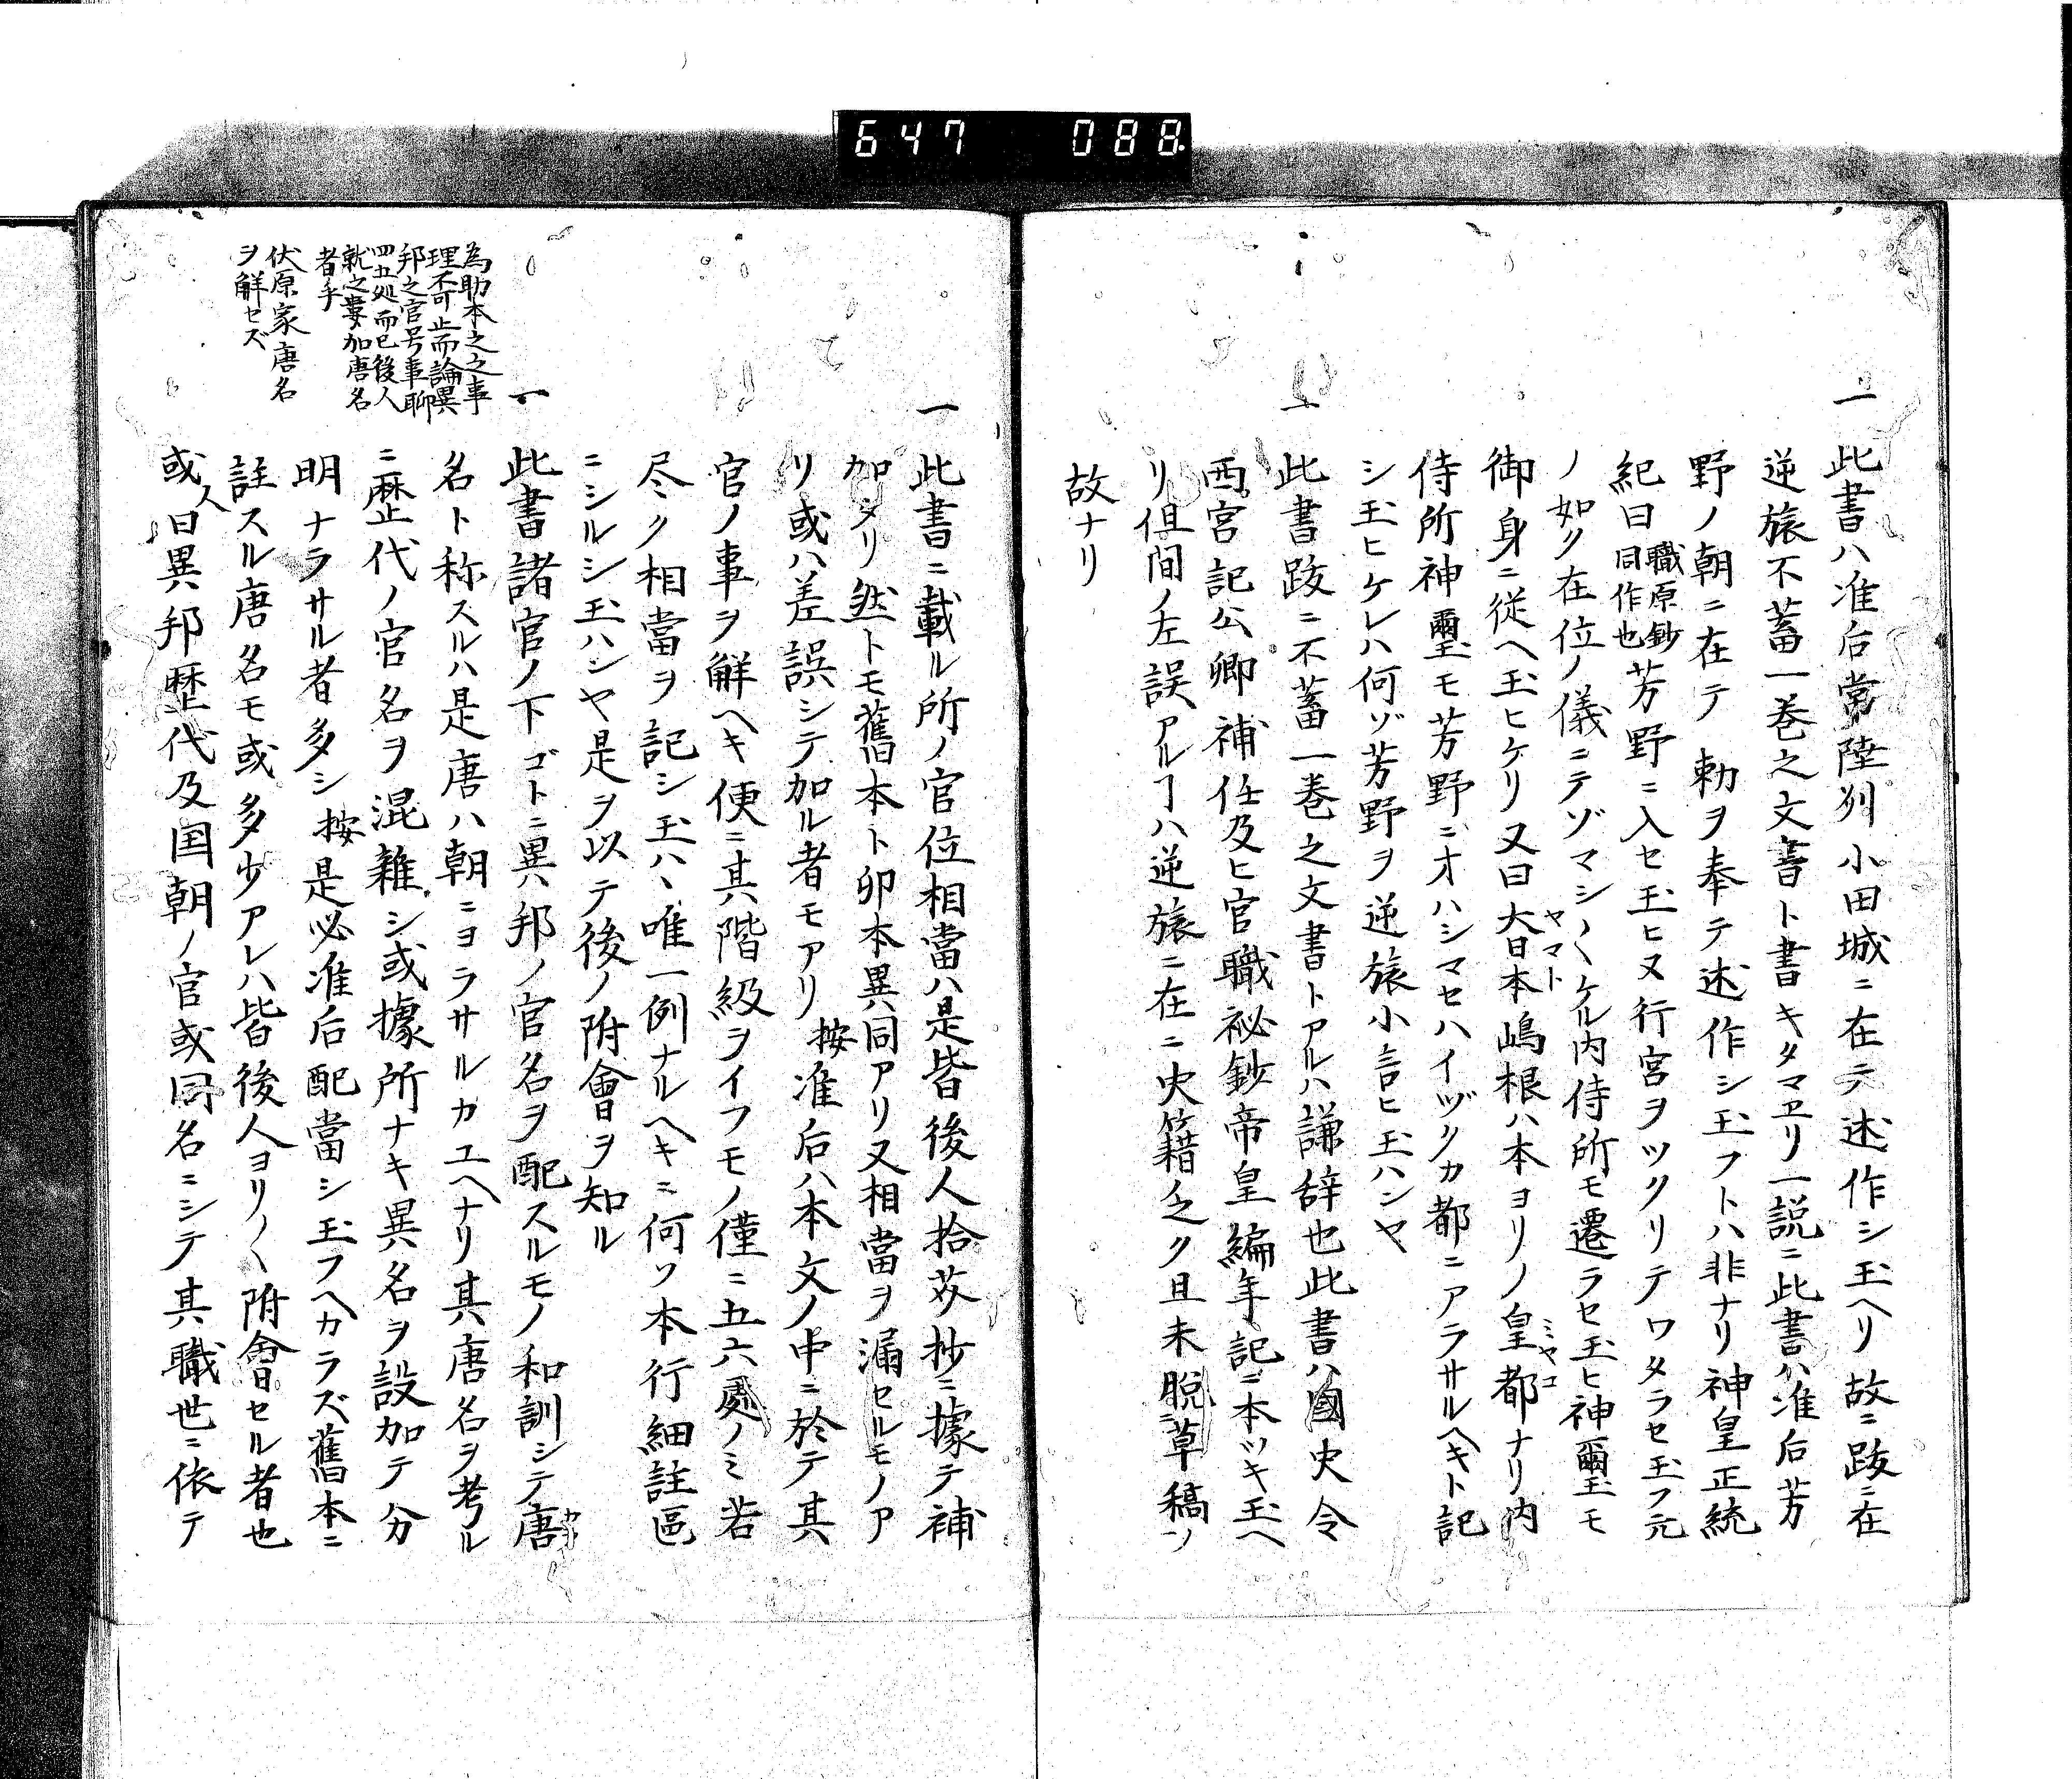 647 088
一
此書ハ准后常陸刕小田城ニ在テ述作シ玉ヘリ故ニ跋ニ在
逆旅不蓄一巻之文書ト書キタマヱリ一説ニ此書ハ准后芳
野ノ朝ニ在テ勅ヲ奉テ述作シ玉フトハ非ナリ神皇正統
紀曰職原鈔同作也芳野ニ入セ玉ヒヌ行宮ヲツクリテワタラセ玉フ元
ノ如ク在位ノ儀ニテゾマシ〱ケル内侍所モ遷ラセ玉ヒ神璽モ
御身ニ従ヘ玉ヒケリ又曰大日本嶋根ハ本ヨリノ皇都ナリ内
ヤマト
ミヤコ
侍所神璽モ芳野ニオハシマセハイヅクカ都ニアラサルヘキト記
シ玉ヒケレハ何ゾ芳野ヲ逆旅小言ヒ玉ハンヤ
一
此書跋ニ不蓄一巻之文書トアルハ謙辞也此書ハ國史令
西宮記公卿補任及ヒ官職祕鈔帝皇編年記ニ本ツキ玉ヘ
リ但間ノ左誤アルヿハ逆旅ニ在ニ史籍乏ク且未脱草稿ソ
故ナリ
一
此書ニ載ル所ノ官位相當ハ是皆後人拾芥抄ニ據テ補
加メリ然トモ舊本ト卯本異同アリ又相當ヲ漏セルモノア
リ或ハ差誤シテ加ル者モアリ按准后ハ本文ノ中ニ於テ其
官ノ事ヲ解ヘキ便ニ其階級ヲイフモノ僅ニ五六處ノミ若
尽ク相當ヲ記シ玉ハヽ唯一例ナルヘキニ何ソ本行細註區
ニシルシ玉ハンヤ是ヲ以テ後ノ附會ヲ知ル
一
此書諸官ノ下ゴトニ異邦ノ官名ヲ配スルモノ和訓シテ唐
名ト称スルハ是唐ハ朝ニヨラサルカユヘナリ其唐名ヲ考ル
ニ歴代ノ官名ヲ混雑シ或據所ナキ異名ヲ設加テ分
明ナラサル者多シ按是必准后配當シ玉フヘカラズ舊本ニ
註スル唐名モ或多少アレハ皆後人ヨリ〱附會セル者也
或人曰異邦歴代及国朝ノ官或同名ニシテ其職世ニ依テ
為助本之之事
理不可止而論異
邦之官号事聊
四五処而已後人
就之妻加唐名
者乎
伏原家唐名
ヲ解セズ